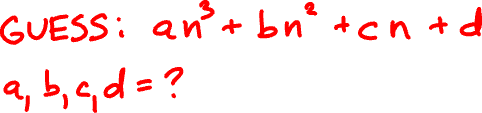 GUESS: an³ + bn² + cn + d
a, b, c, d = ?